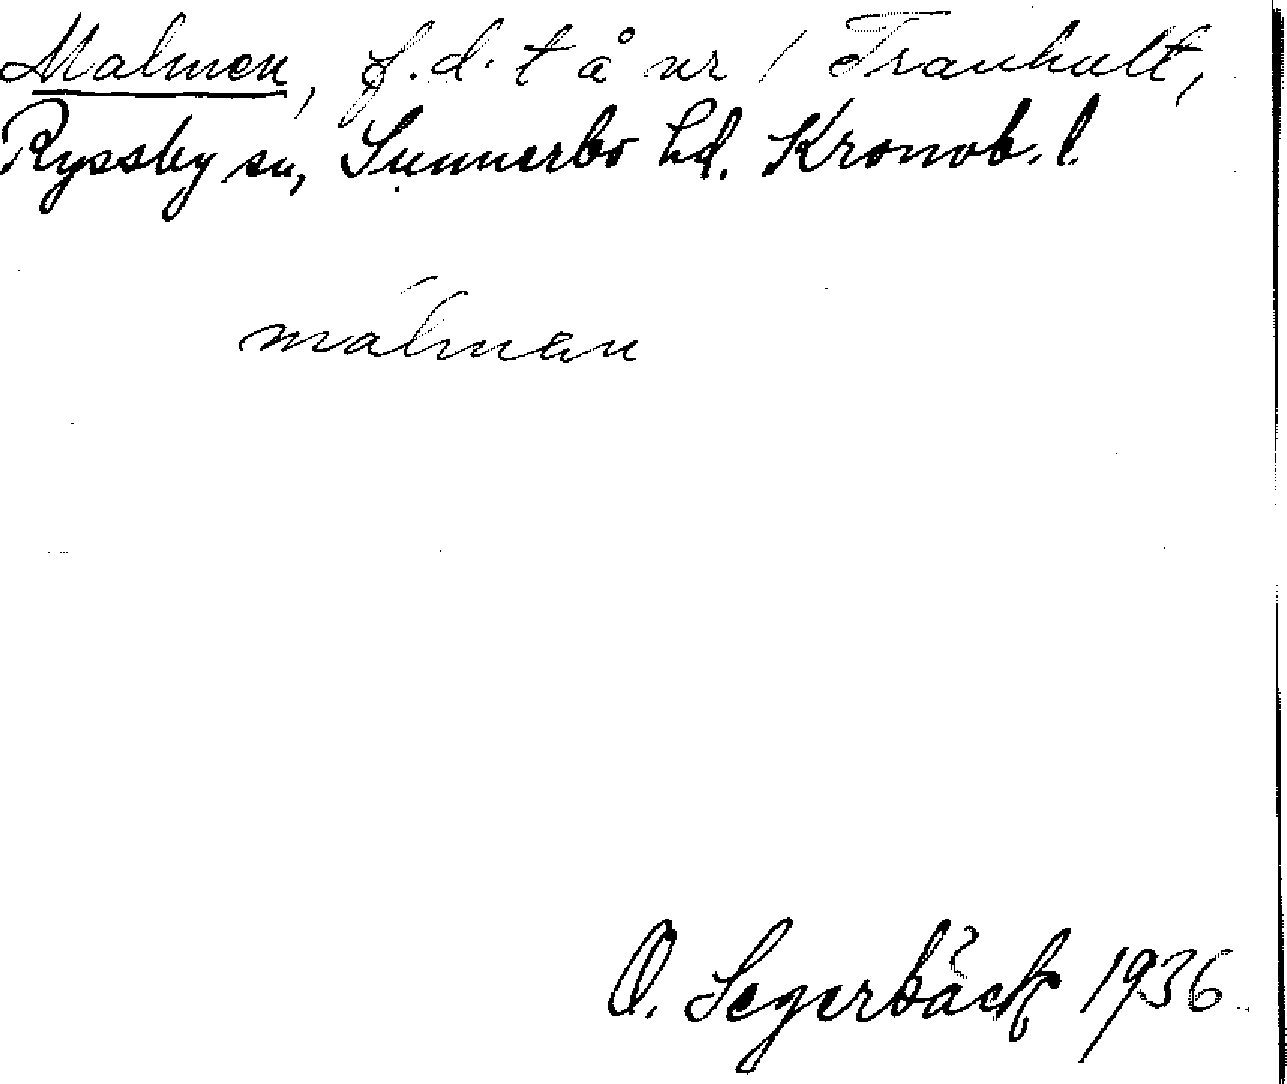 Malmen, f.d. t å nr 1 Tranhult,
Ryssby sn, Sunnerbo hd. Kronob. l.
málman
O. Segerbäck 1936